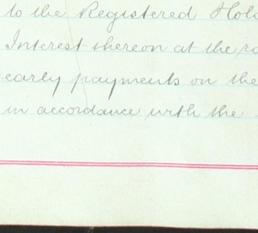 to the Registered Hold
Interest thereon at the ra
early payments on the
in accordance with the